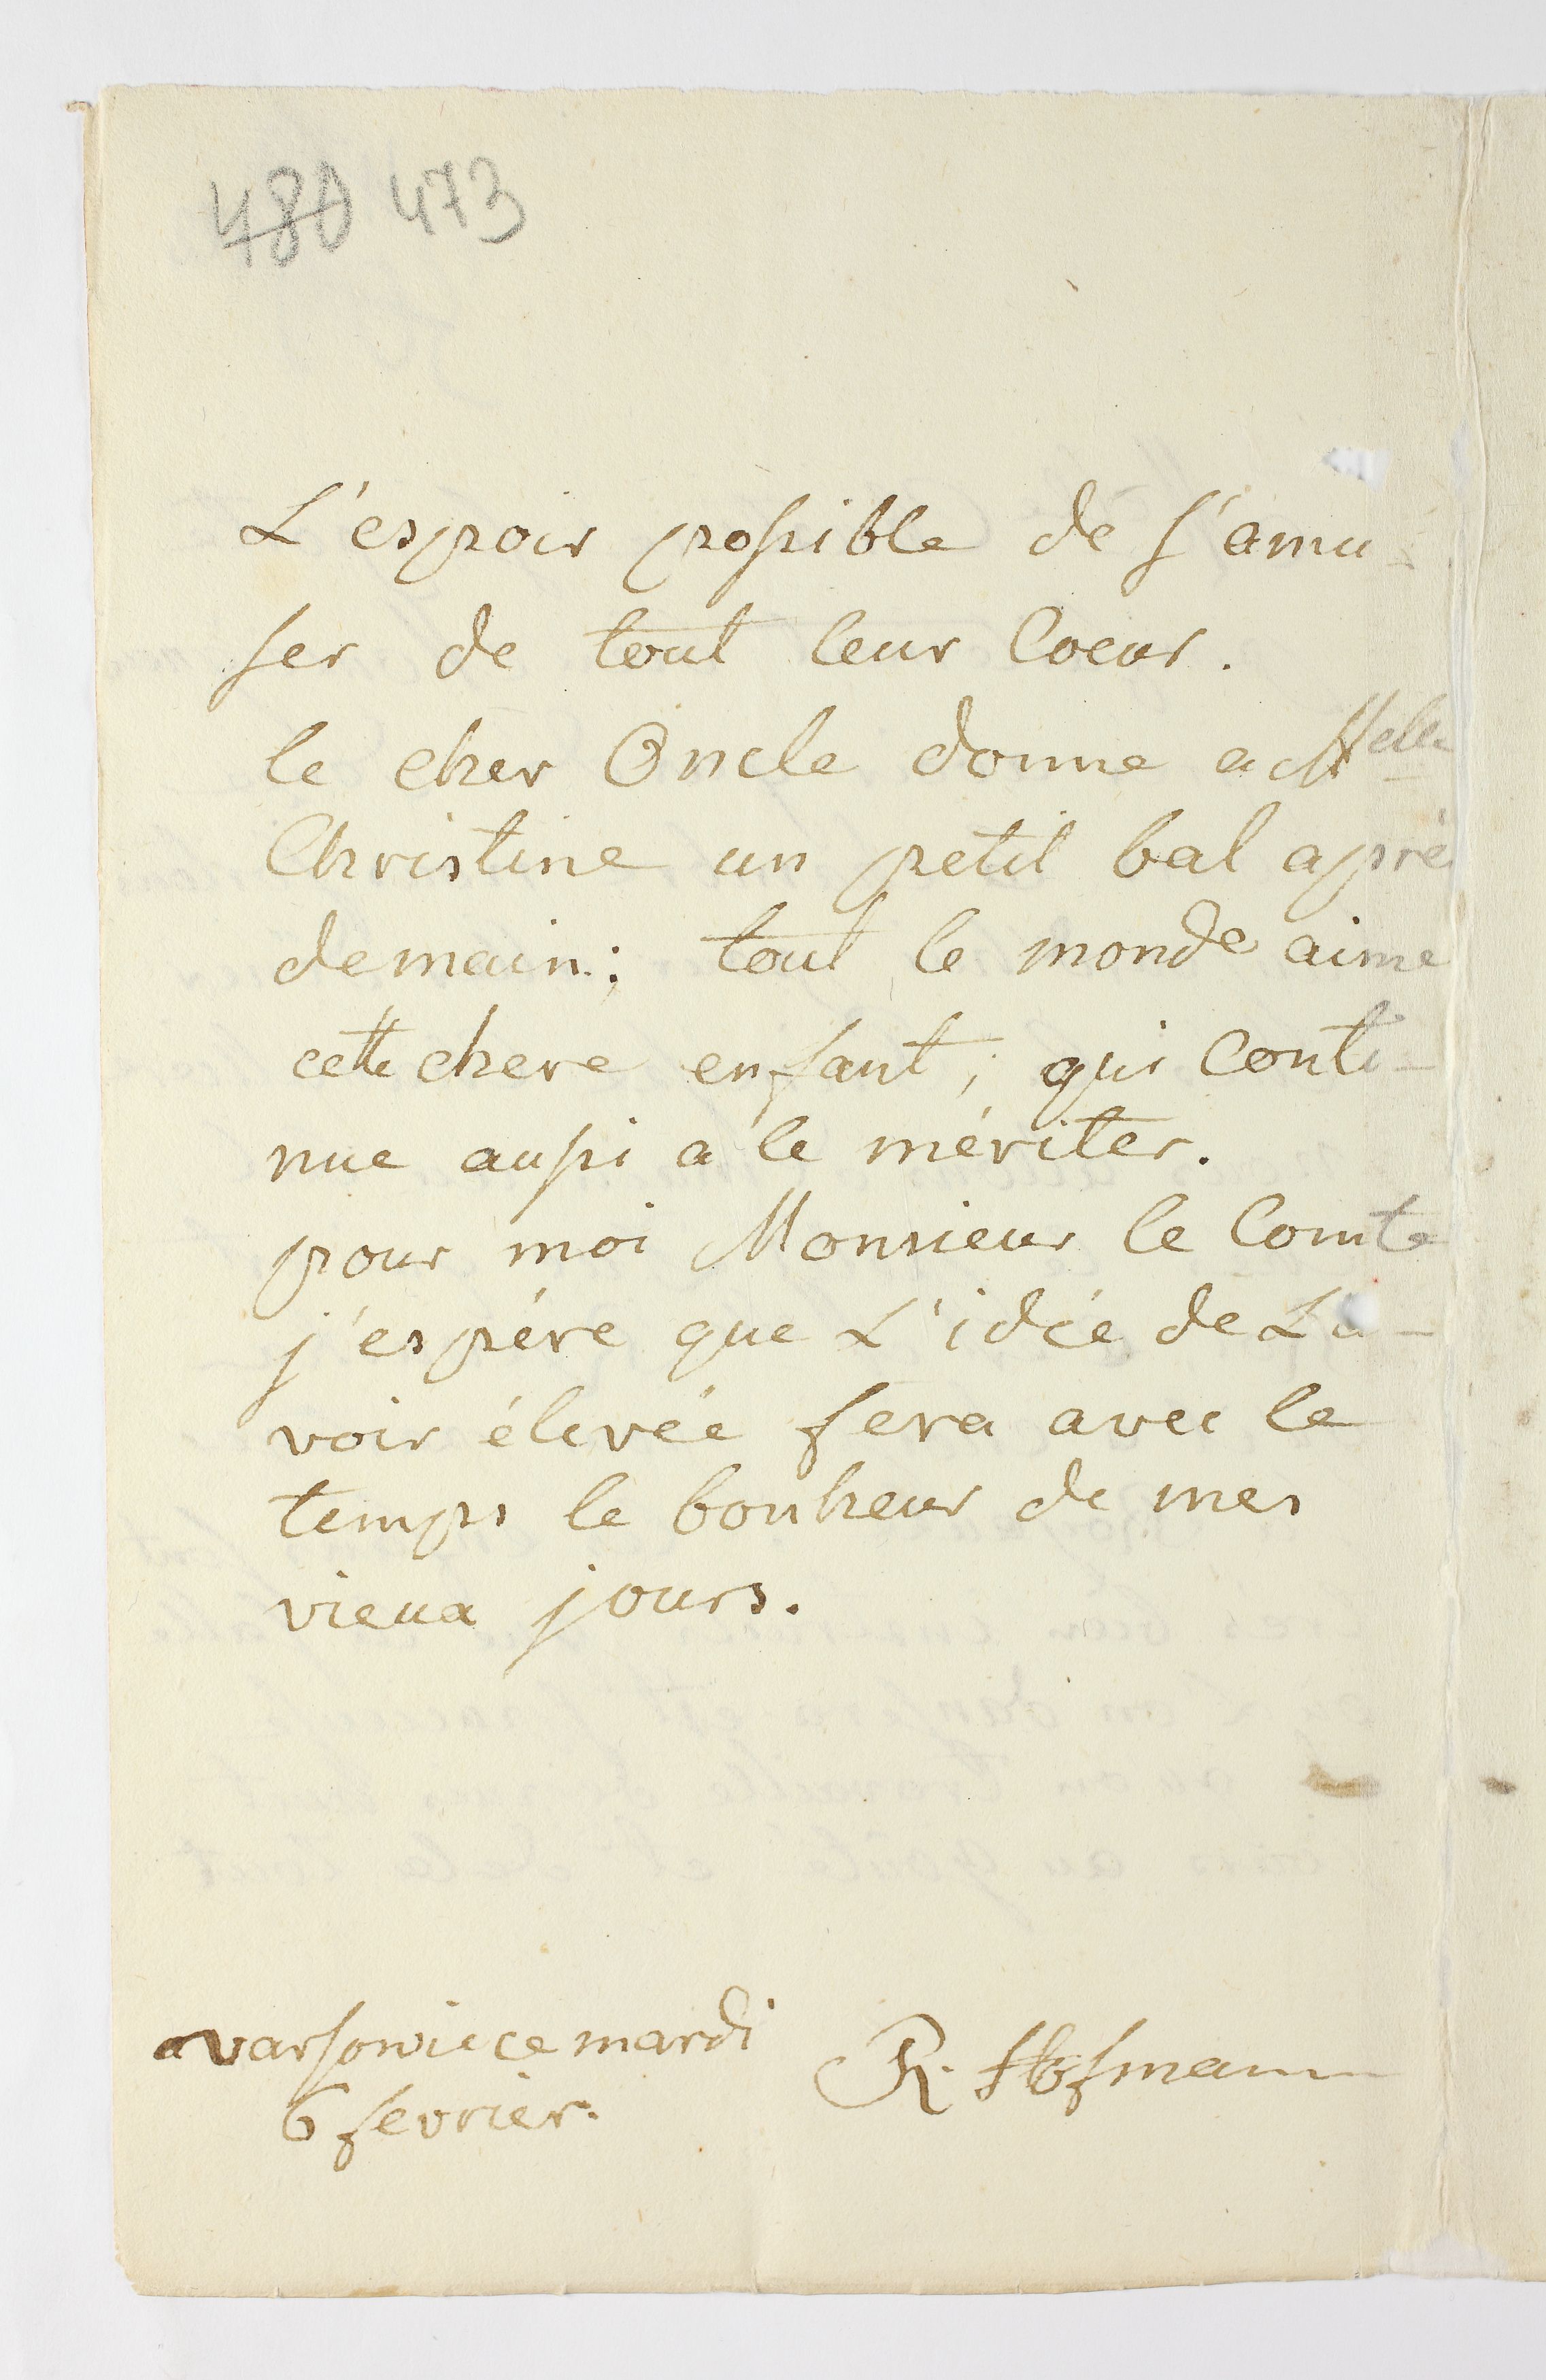 480 473
L'espoir possible de s'amu-
ser de tout leur Coeur.
le cher Oncle donne a Melle
Christine un petit bal aprè
demain; tout le monde aime
cette chere enfant; qui Conti-
nue aussi a le mériter.
pour moi Monsieur le Comte
j'espére que L'idée de L'a-
voir élevée fera avec le
temps le bonheur de mes
vieux jours.
varsovie ce mardi
6 fevrier.
R. Hofmann